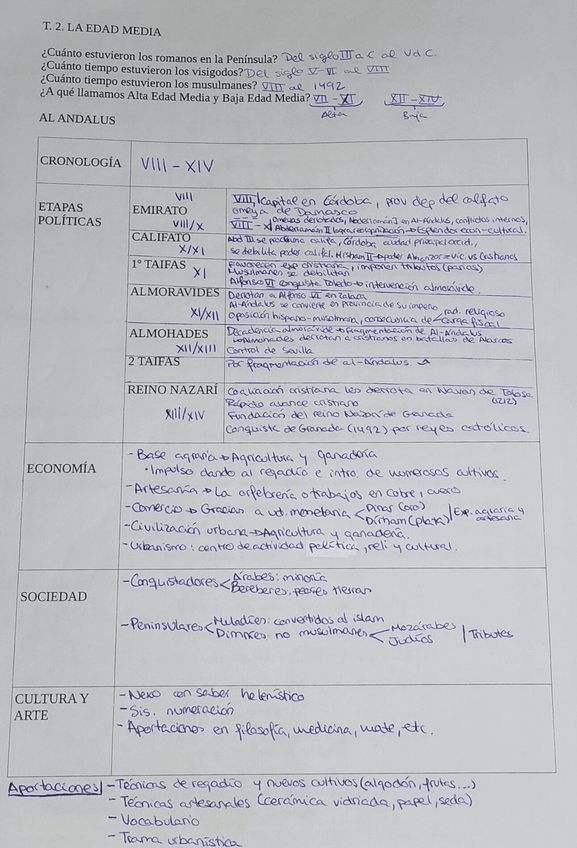 T. 2. LA EDAD MEDIA
¿Cuánto estuvieron los romanos en la Península? Del siglo III a.C al V d.C.
¿Cuánto tiempo estuvieron los visigodos? Del siglo V-VI al VIII
¿Cuánto tiempo estuvieron los musulmanes? VIII al 1492
¿A qué llamamos Alta Edad Media y Baja Edad Media? VII - XI XII - XIV
Alta Baja
AL ANDALUS
CRONOLOGÍA VIII - XIV
ETAPAS POLÍTICAS
VIII
EMIRATO VIII, capital en Córdoba, prov dep del califato
omeya de Damasco
VIII/X VIII - X omeyas derrotados, Abderramán I en Al-Ándalus, conflictos internos,
Abderramán II logra recuperación → Esplendor econ-cultural.
CALIFATO Abd III se proclama califa, Córdoba ciudad principal occid.,
X/XI se debilita poder califal. Hisham II → poder Almanzor = vic vs Cristianos
1º TAIFAS Favorecen exp cristiana, imponen tributos (parias)
XI Musulmanes se debilitan
Alfonso VI conquista Toledo → intervención almorávide.
ALMORAVIDES Derrotan a Alfonso VI en
Al-Ándalus se convierte en provincia de su imperio
XI/XII Oposición hispano-musulmana, consecuencia de rad. religioso
carga fiscal
ALMOHADES Decadencia almorávide → fragmentación de Al-Ándalus
Almohades derrotan a cristianos en batallas de Alarcos
XII/XIII Control de Sevilla
2 TAIFAS Por fragmentación de al-Ándalus
REINO NAZARÍ Coalición cristiana les derrota en Navas de Tolosa
(1212)
Rápido avance cristiano
XIII/XIV Fundación del reino Nazarí de Granada
Conquista de Granada (1492) por reyes católicos.
ECONOMÍA
- Base agraria → Agricultura y ganadería
· Impulso dando al regadío e intro. de numerosos cultivos.
- Artesanía → La orfebrería o trabajos en cobre, cuero
- Comercio → Gracias a ud. monetaria < Dinar (oro) Exp. agraria y
Dirham (plata) artesanía
- Civilización urbana → Agricultura y ganadería.
- Urbanismo: centro de actividad política, reli y cultural.
SOCIEDAD
- Conquistadores < Árabes: minoría
Bereberes: peores tierras
- Peninsulares < Muladíes: convertidos al islam
Dimmíes: no musulmanes < Mozárabes | Tributos
Judíos
CULTURA Y ARTE
- Nexo con saber helenístico
- Sis. numeración
- Aportaciones en filosofía, medicina, mate, etc.
Aportaciones | - Técnicas de regadío y nuevos cultivos (algodón, frutas...)
- Técnicas artesanales (cerámica vidriada, papel, seda)
- Vocabulario
- Trama urbanística